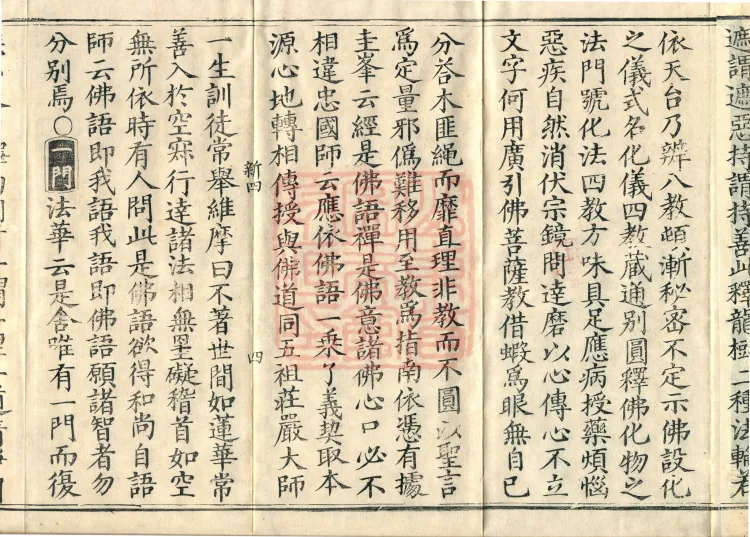 遮謂遮惡持謂持善此釋龍樹二種法輪若
依天台乃辨八教頓漸秘密不定示佛設化
之儀式名化儀四教藏通別圓釋佛化物之
法門號化法四教方味具足應病授藥煩惱
惡疾自然消伏宗鏡問達磨以心傳心不立
文字何用廣引佛菩薩教借蝦為眼無自己
分荅木匪繩而靡直理非教而不圓以聖言
為定量邪偽難移用至教為指南依憑有據
圭峯云經是佛語禪是佛意諸佛心口必不
相違忠國師云應依佛語一乗了義契取本
源心地轉相傳授與佛道同五祖莊嚴大師
新四
四
一生訓徒常舉維摩曰不著世間如蓮華常
善入於空寂行達諸法相無罣礙稽首如空
無所依時有人問此是佛語欲得和尚自語
師云佛語即我語我語即佛語願諸智者勿
分別焉〇一門法華云是舍唯有一門而復